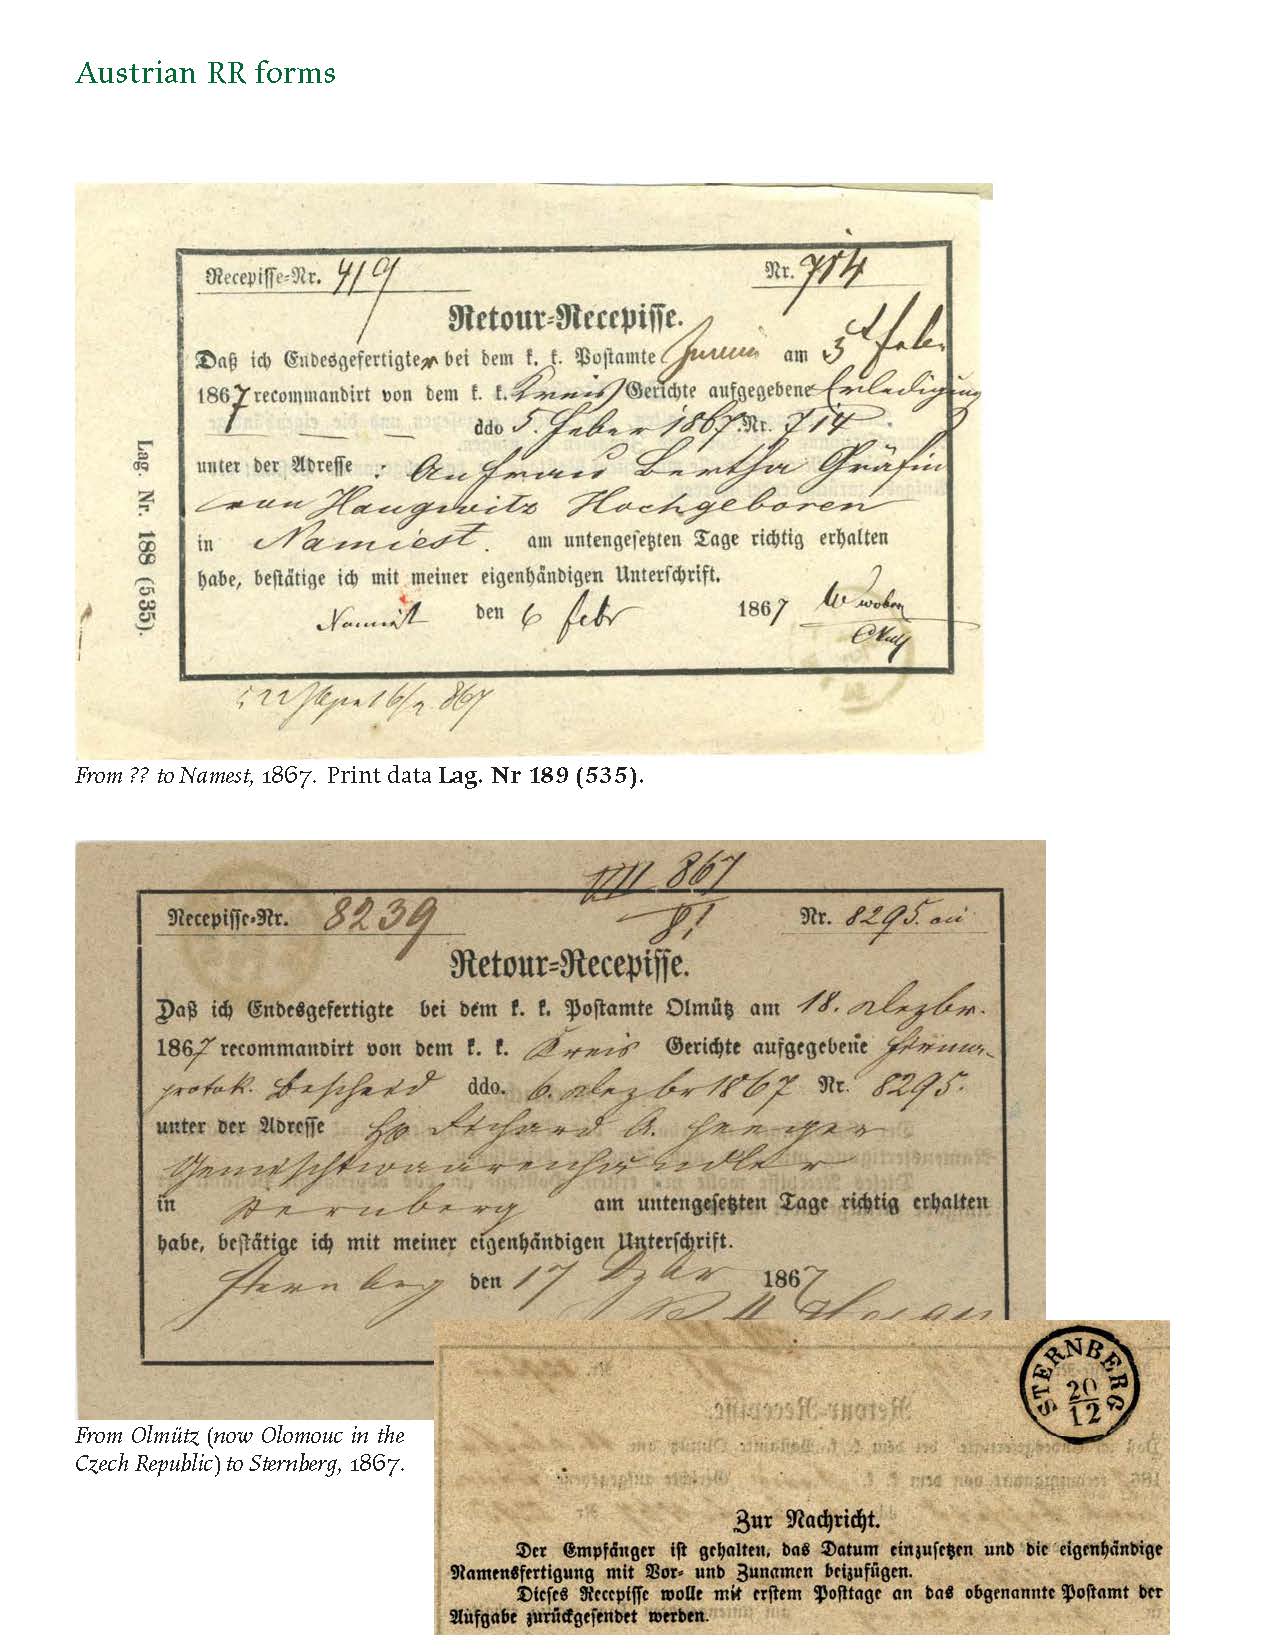 Austrian RR forms
Recepisse-Nr. 419 Nr. 714
Retour-Recepisse.
Daß ich Endesgefertigter bei dem k. k. Postamte am 5t Feber
1867 recommandirt von dem k. k. Kreis Gerichte aufgegebene Erledigung
ddo 5. Feber 1867. Nr. 714
unter der Adresse : An Frau Bertha Gräfin
von Haugwitz Hochgeboren
in Namiest. am untengesetzten Tage richtig erhalten
habe, bestätige ich mit meiner eigenhändigen Unterschrift.
Namiest den 6 Febr 1867
Lag. Nr. 188 (535).
From ?? to Namest, 1867. Print data Lag. Nr 189 (535).
867
Recepisse-Nr. 8239 Nr. 8295.
Retour-Recepisse.
Daß ich Endesgefertigte bei dem k. k. Postamte Olmütz am 18. Dezbr.
1867 recommandirt von dem k. k. Kreis Gerichte aufgegebene Firma-
protok. Bescheid ddo. 6. Dezbr 1867 Nr. 8295.
unter der Adresse
Gemischtwaarenhändler
in Sternberg am untengesetzten Tage richtig erhalten
habe, bestätige ich mit meiner eigenhändigen Unterschrift.
Sternberg den 17 Dzbr 1867
STERNBERG
20
12
From Olmütz (now Olomouc in the
Czech Republic) to Sternberg, 1867.
Zur Nachricht.
Der Empfänger ist gehalten, das Datum einzusetzen und die eigenhändige
Namensfertigung mit Vor- und Zunamen beizufügen.
Dieses Recepisse wolle mit erstem Posttage an das obgenannte Postamt der
Aufgabe zurückgesendet werden.